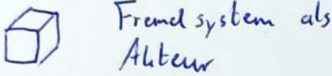 Fremdsystem als
Akteur